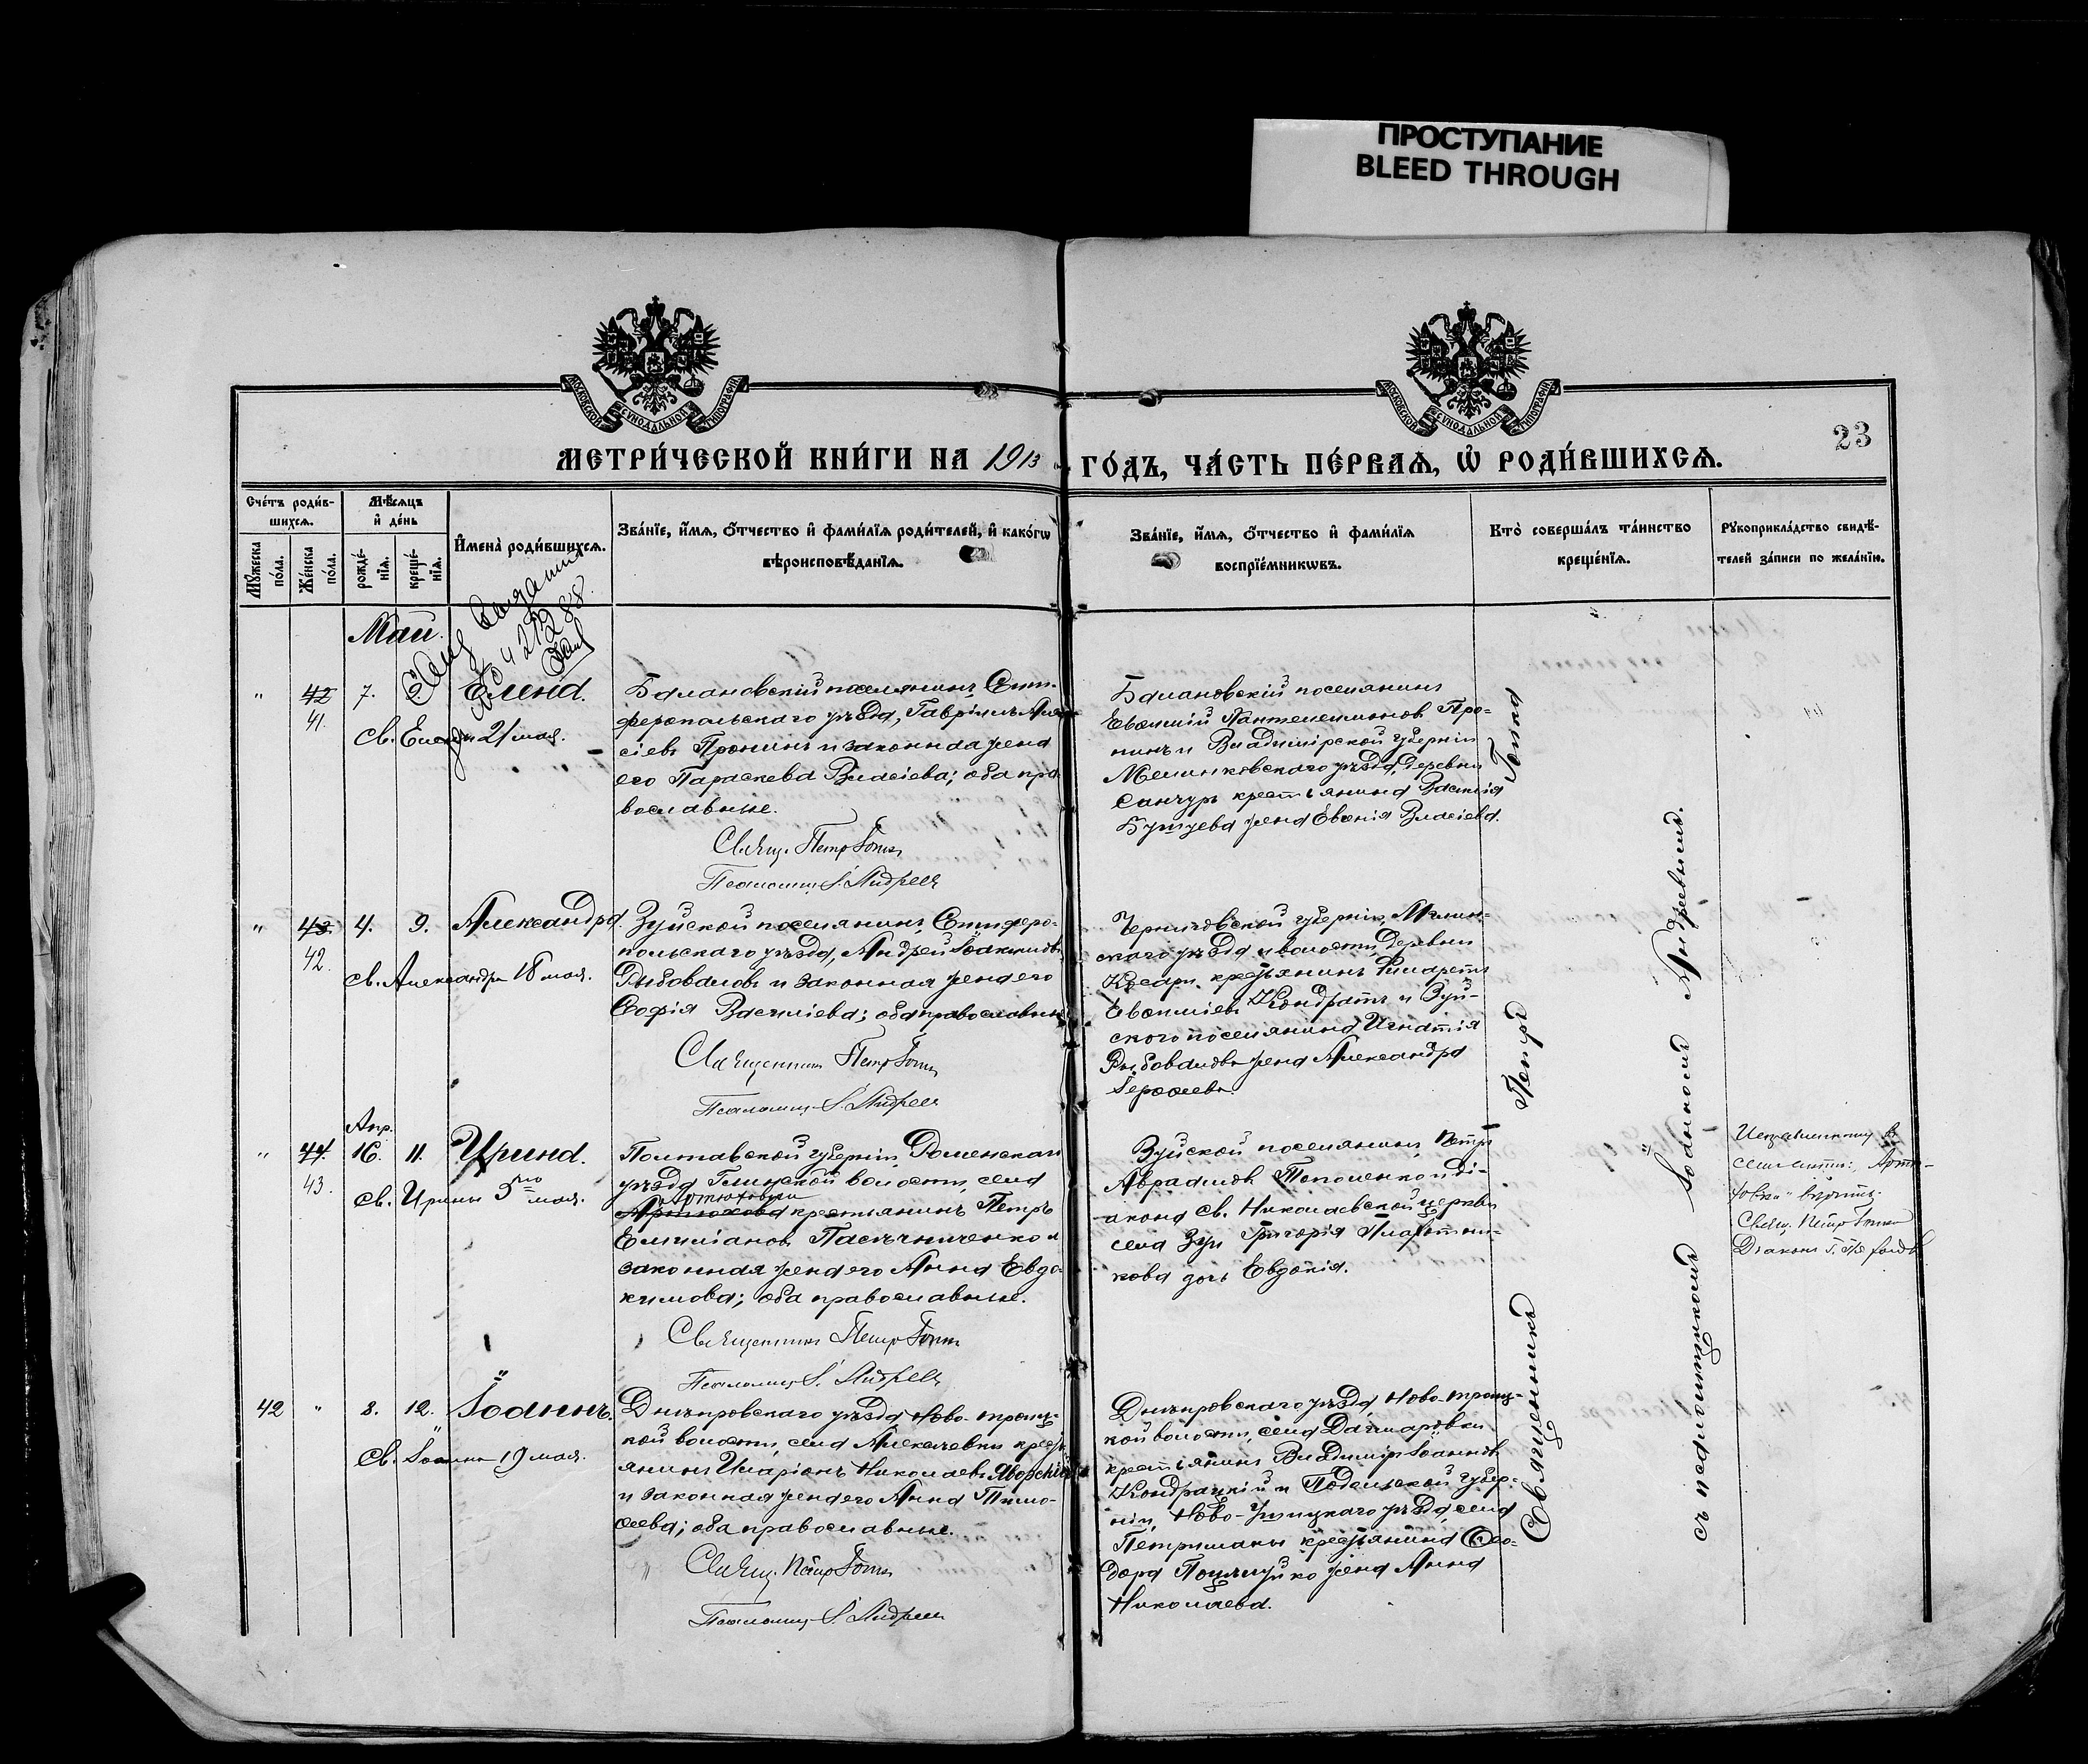 ПРОСТУПАНИЕ
BLEED THROUGH
МОСКОВСКОЙ СѴНОДАЛЬНОЙ ТИПОГРАФІИ
МОСКОВСКОЙ СѴНОДАЛЬНОЙ ТИПОГРАФІИ
23
МЕТРИ́ЧЕСКОЙ КНИ́ГИ НА 1913 ГО́ДЪ, ЧА́СТЬ ПЕ́РВАѦ, Ѡ҆ РОДИ́ВШИХСѦ.
Сче́тъ роди́в-
шихсѧ.
Мꙋ́жеска по́ла.
Же́нска по́ла.
Мѣ́сѧцъ
и҆ де́нь
рожде́-
нїѧ.
креще́-
нїѧ.
И҆мена̀ роди́вшихсѧ.
Зва́нїе, и҆́мѧ, ѻ҆́тчество и҆ фами́лїѧ роди́телей, и҆ како́гѡ
вѣроисповѣ́данїѧ.
Зва́нїе, и҆́мѧ, ѻ҆́тчество и҆ фами́лїѧ
воспрїе́мникѡвъ.
Кто̀ соверша́лъ та́инство
креще́нїѧ.
Рꙋкоприкла́дство свидѣ́-
телей за́писи по жела́нїю.
Май.
" 42 7. Елена.
41.
св. Елены 21 мая.
Балановскій поселянинъ Сим-
феропольскаго уѣзда, Гавріилъ
сіевъ Пронинъ и законная жена
его Параскева Власіева; оба пра-
вославные.
Свящ. Петр Готка
Псаломщ. І. Андреев
Балановскій поселянинъ
Евѳимій Пантелеимонов Про-
нинъ и Владимірской губерніи
Меленковскаго уѣзда, деревни
Санчуръ крестьянина Василія
жена Евгенія Власіева.
" 43 4. 9. Александра.
42.
св. Александры 18 мая.
Зуйской поселянинъ, Симферо-
польскаго уѣзда, Андрей Іоакимовъ
Рыбоваловъ и законная жена его
Софія Василіева; оба православные
Священник Петр Готка
Псаломщ. І. Андреев
Черниговской губерніи, Мглин-
скаго уѣзда и волости, деревни
крестьянинъ Филаретъ
Евѳиміевъ Кондратъ и Зуй-
ского поселянина Игнатія
Рыбовалова жена Александра
Апр.
" 44. 16. 11. Ирина.
43.
св. Ирины 5го мая.
Полтавской губерніи, Роменскаго
уѣзда Глинской волости, села
Артюховки
Артюхова крестьянинъ Петръ
Емиліановъ Пасѣчниченко и
законная жена его Анна Евдо-
кимова; оба православные.
Священникъ Петр Готка
Псаломщ. І. Андреев
Зуйской поселянинъ Петръ
Авраамовъ Тополенко и ді-
акона св. Николаевской церкви
села Зуи Григорія
кова дочь Евдокія.
Исправленному
Артю-
ховка" вѣрить.
Свящ. Петр Готка
Діаконъ
42 " 8. 12. Іоаннъ.
св. Іоанна 19 мая.
Днѣпровскаго уѣзда, Ново-троиц-
кой волости, села Алексѣевки крест-
янинъ Иларіонъ Николаевъ Яворскій
и законная жена его Анна Тимо-
ѳеева; оба православные.
Свящ. Петр Готка
Псаломщ. І. Андреев
Днѣпровскаго уѣзда, Ново-троиц-
кой волости, села
крестьянинъ Владиміръ Іоанновъ
Кондрацкій и Подольской губер-
ніи, Ново-Ушицкаго уѣзда, села
Петриманы крестьянина Ѳео-
дора жена Анна
Николаева.
Священникъ Петръ Готка
съ псаломщикомъ Іоанномъ Андреевымъ.